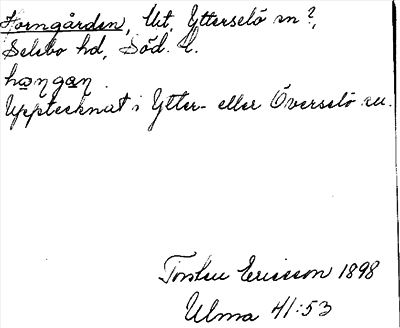 Horngården, Ut. Ytterselö sn?,
Selebo hd, Söd. l.
haŋgaṇ.
Upptecknat i Ytter- eller Överselö sn.
Torsten Ericsson 1898
Ulma 41:53